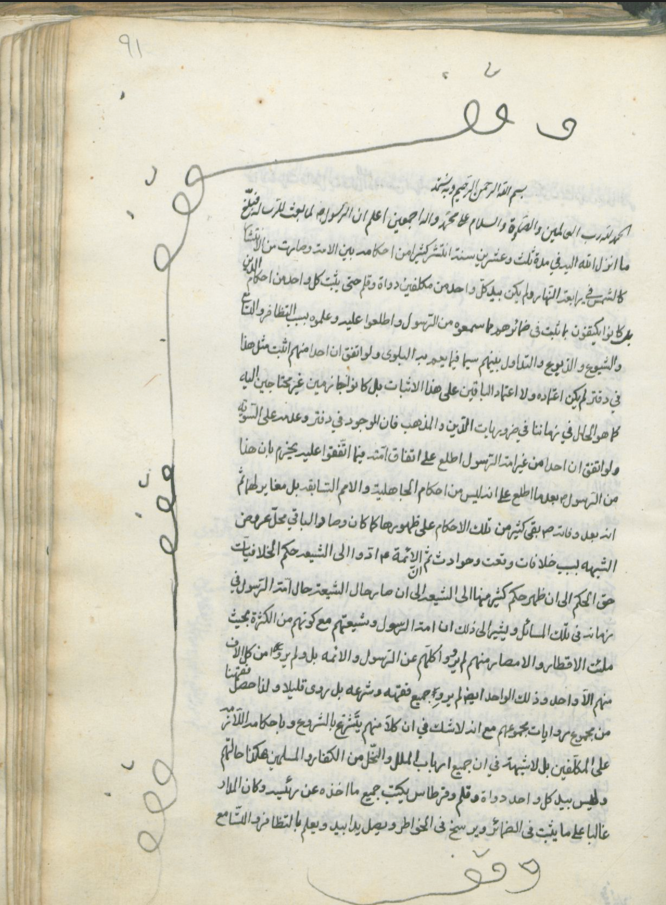 91
وقف
بسم الله الرحمن الرحيم وبه نستعين
الحمد لله رب العالمين والصلوة والسلام على محمد واله اجمعين اعلم ان الرسول ص لما بعث للرسالة فبلغ
ما انزل الله اليه في مدة ثلث وعشرين سنة انتشر كثير من احكامه بين الامة وصارت من
كالشمس في رابعة النهار ولم يكن بيد كل واحد من مكلفين دواة وقلم حتى يثبت كل واحد من احكام الدين
بل كانوا يكتفون بما ثبت في ضمائرهم مما سمعوه من الرسول واطلعوا عليه وعلموه بسبب التظافر والتسامع
والشيوع والذيوع والتداول بينهم سيما فيما يعم به البلوى ولو اتفق ان احدا منهم اثبت مثل هذا
في دفتر لم يكن اعتماده ولا اعتماد الباقين على هذا الاثبات بل كانوا غير محتاجين اليه
كما هو الحال في زماننا في ضروريات الدين والمذهب فان الموجود في دفتر وعدمه على السوية
ولو اتفق ان احدا من غير امة الرسول اطلع على اتفاق امته فيما اتفقوا عليه يجزم بان هذا
من الرسول ص بعد ما اطلع على انه ليس من احكام الجاهلية والامم السابقة بل مغاير لها ثم
انه بعد وفاته ص بقى كثير من تلك الاحكام على ظهورها كما كان وصار الباقي محل عروض
الشبهة بسبب خلافات وقعت وحوادث ثم الائمة ع ادوا الى الشيعة حكم الخلافيات
حق الحكم الى ان ظهر حكم كثير منها الى الشيعة الى ان صار حال الشيعة حال امة الرسول في
زمانه في تلك المسائل ويشير الى ذلك ان امة الرسول وشيعتهم مع كونهم من الكثرة بحيث
ملئت الاقطار والامصار منهم لم يرووا كلهم عن الرسول والائمة بل ولم يرو من كل الاف
منهم الا واحد وذلك الواحد ايضا لم يرو جميع فقهه وشرعه بل روى قليلا ولنا حصل
من مجموع روايات مجموعهم مع انه لا شك في ان كلا منهم يتشرع بالشرع وباحكامه اللازمة
على المكلفين بل لا شبهة في ان جميع ارباب الملل والنحل من الكفار والمسلمين هكذا حالتهم
وليس بيد كل واحد دواة وقلم وقرطاس يكتب جميع ما اخذه عن رئيسه وكان المدار
غالبا على ما يثبت في الضمائر ويرسخ في الخواطر ويصل يدا بيد ويعلم بالتظافر والتسامع
وقف